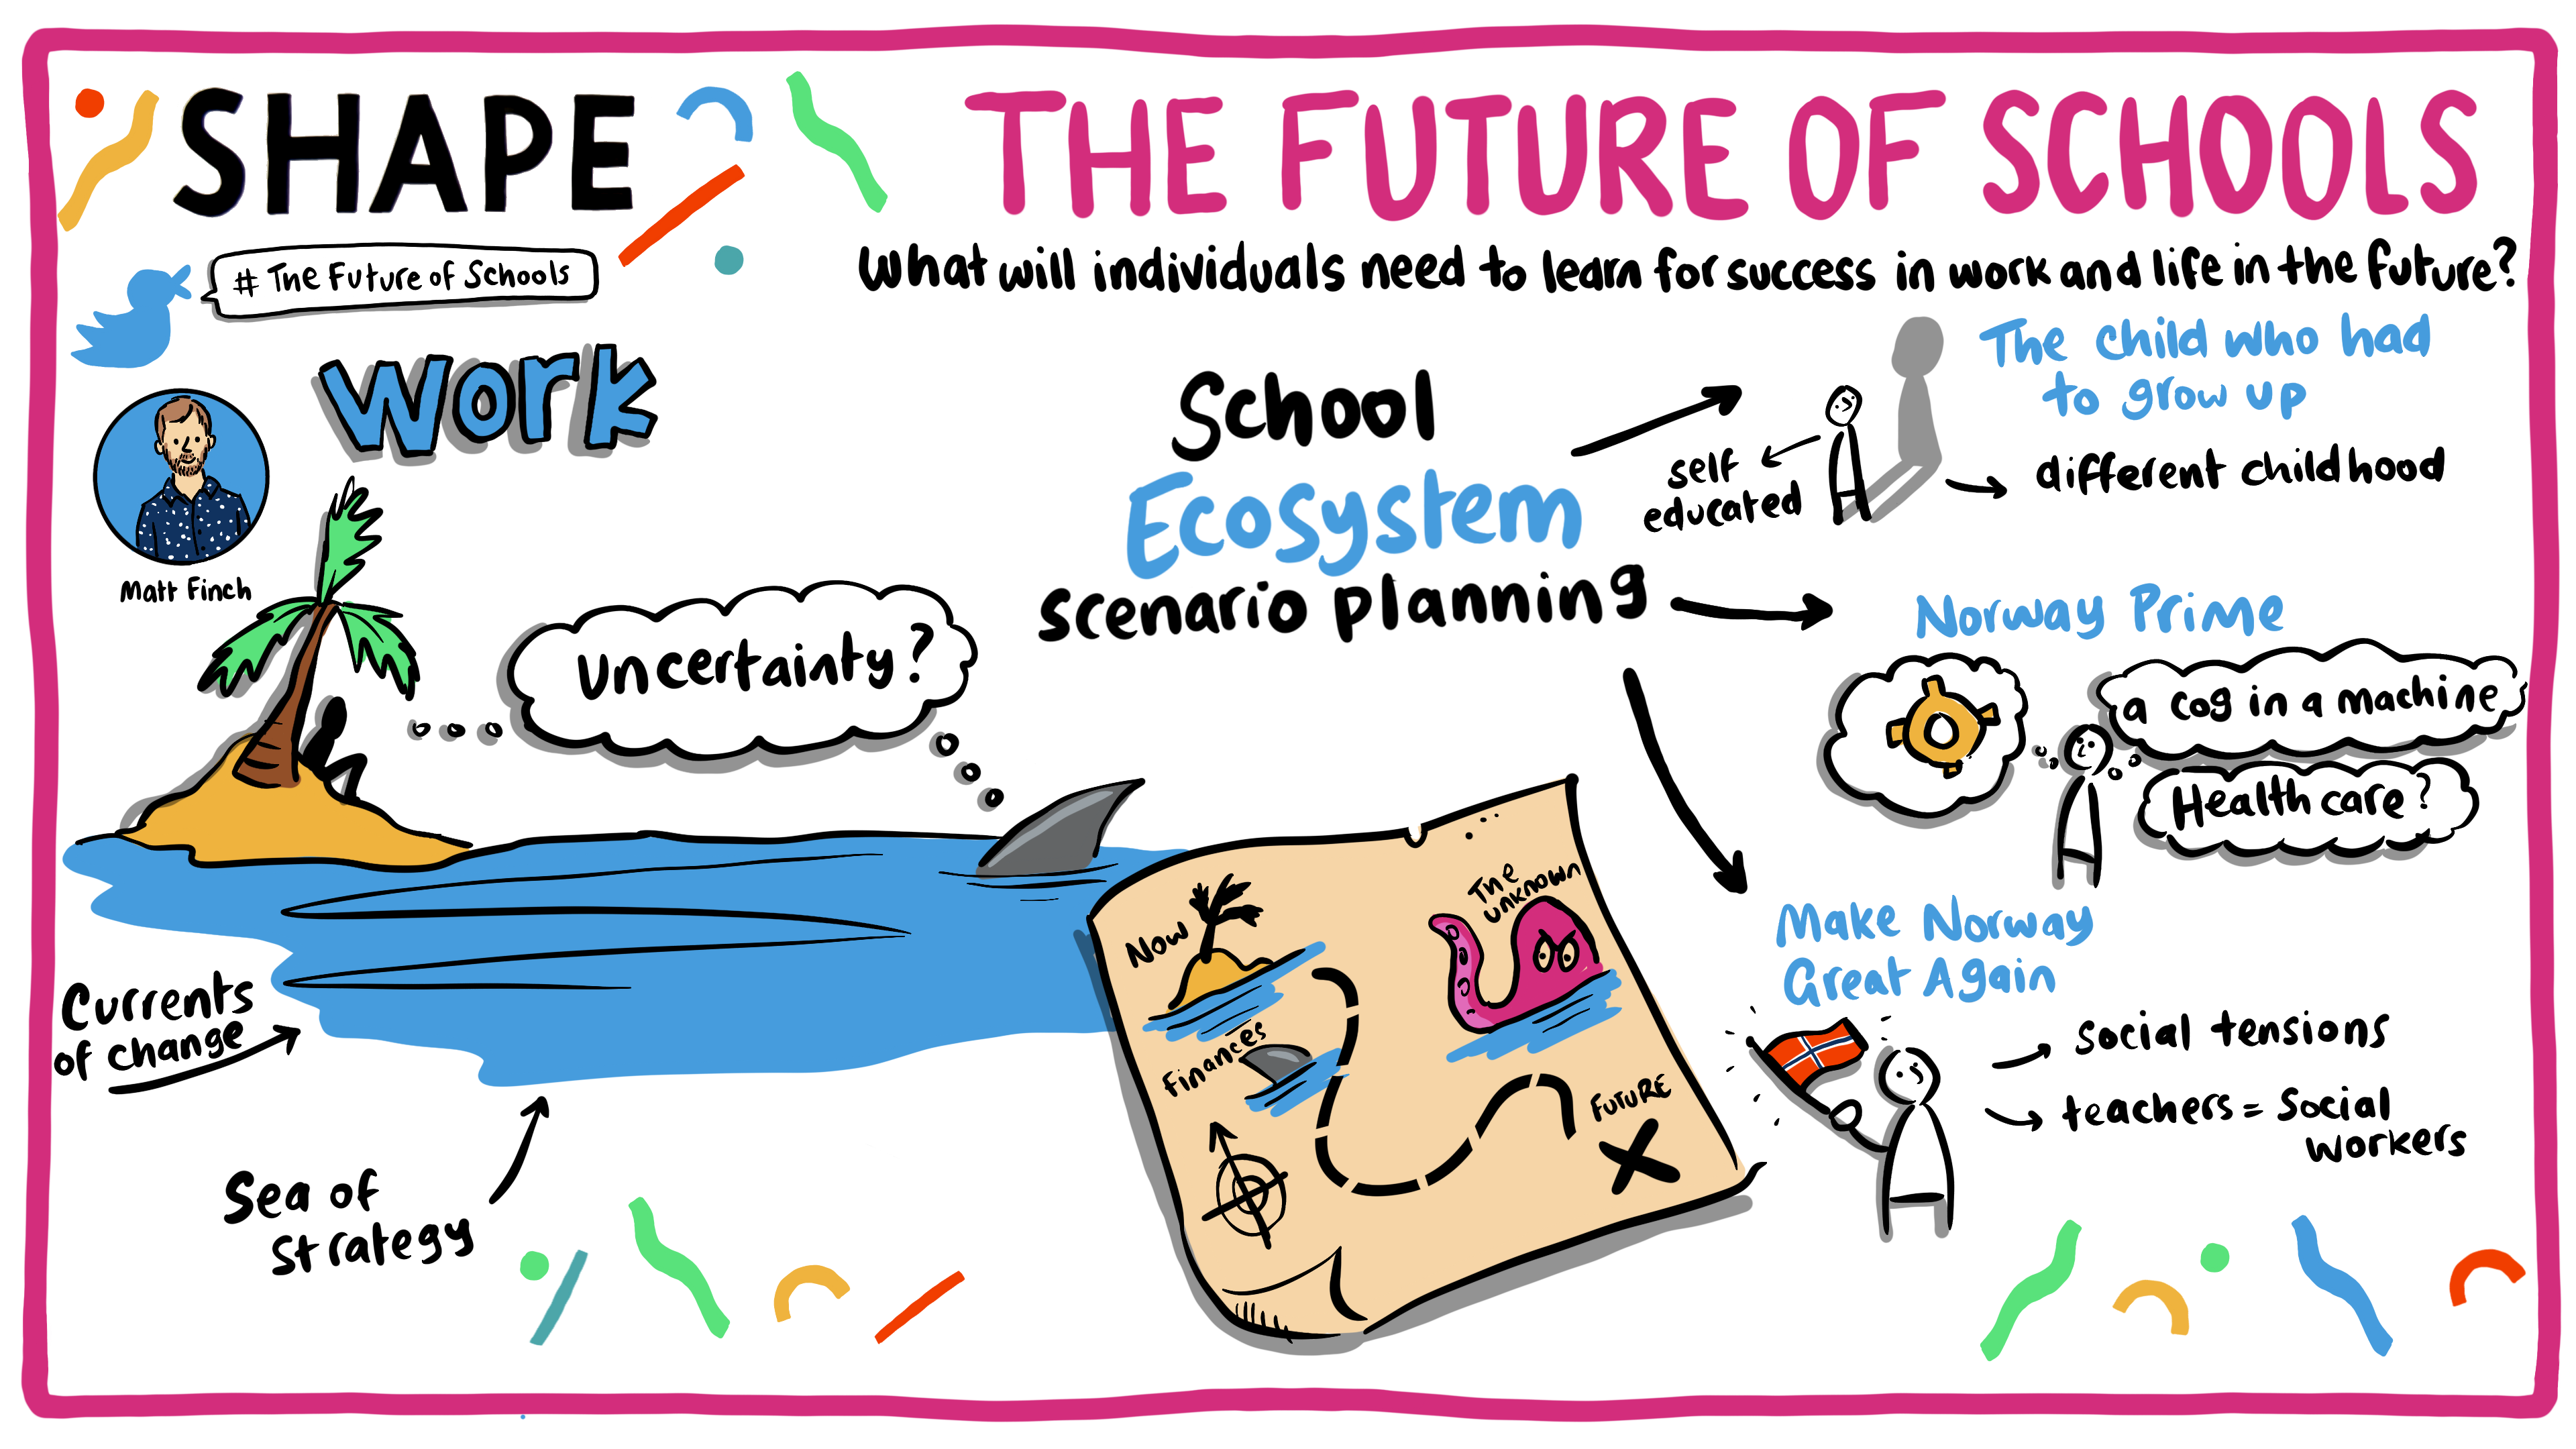 SHAPE
# The Future of Schools
THE FUTURE OF SCHOOLS
What will individuals need to learn for success in work and life in the future?
Work
Matt Finch
Uncertainty?
Currents
of change
Sea of
Strategy
School
Ecosystem
scenario planning
The child who had
to grow up
self
educated
different childhood
Norway Prime
a cog in a machine
Health care?
Make Norway
Great Again
social tensions
teachers = Social
workers
Now
The
unknown
Finances
Future